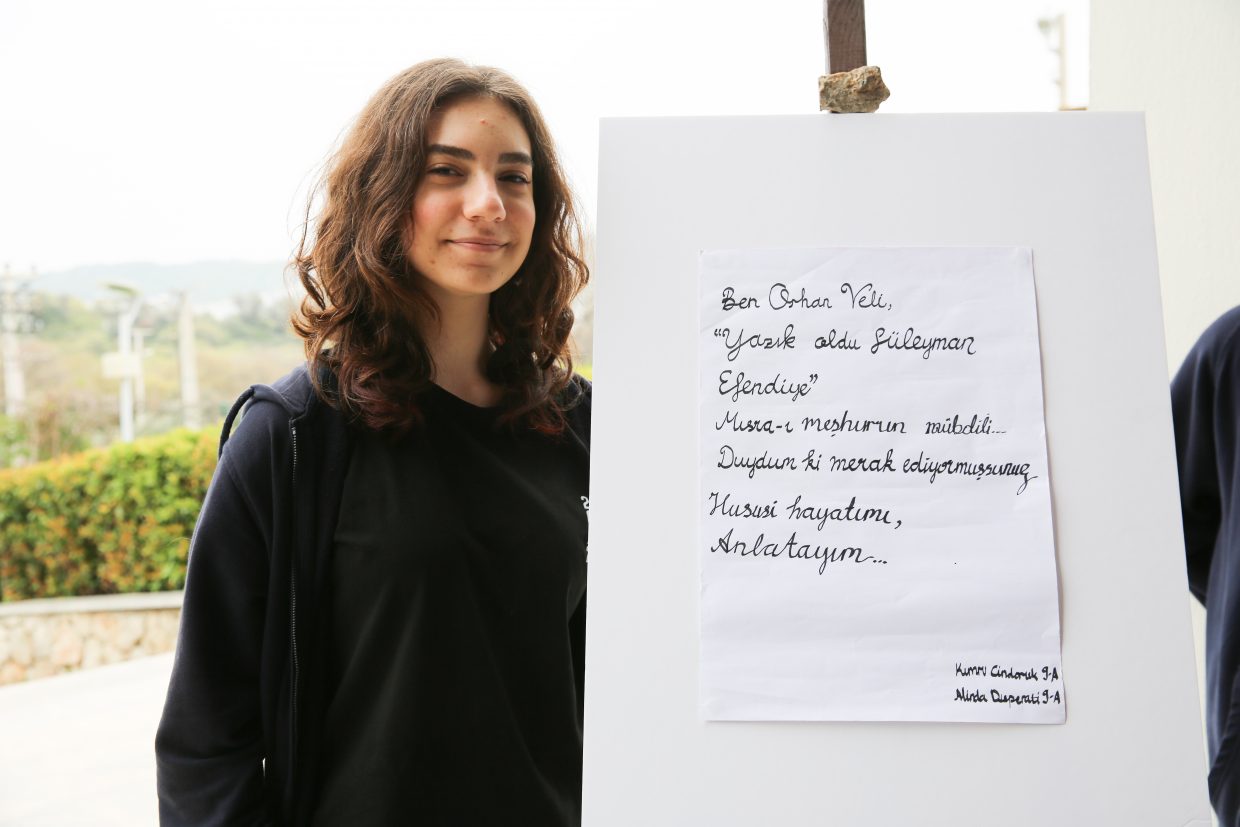 Ben Orhan Veli,
"Yazık oldu Süleyman
Efendiye"
Mısra-ı meşhurun mübdili...
Duydum ki merak ediyormuşsunuz
Hususi hayatımı,
Anlatayım...
Kumru Cindoruk 9-A
Alinda 9-A